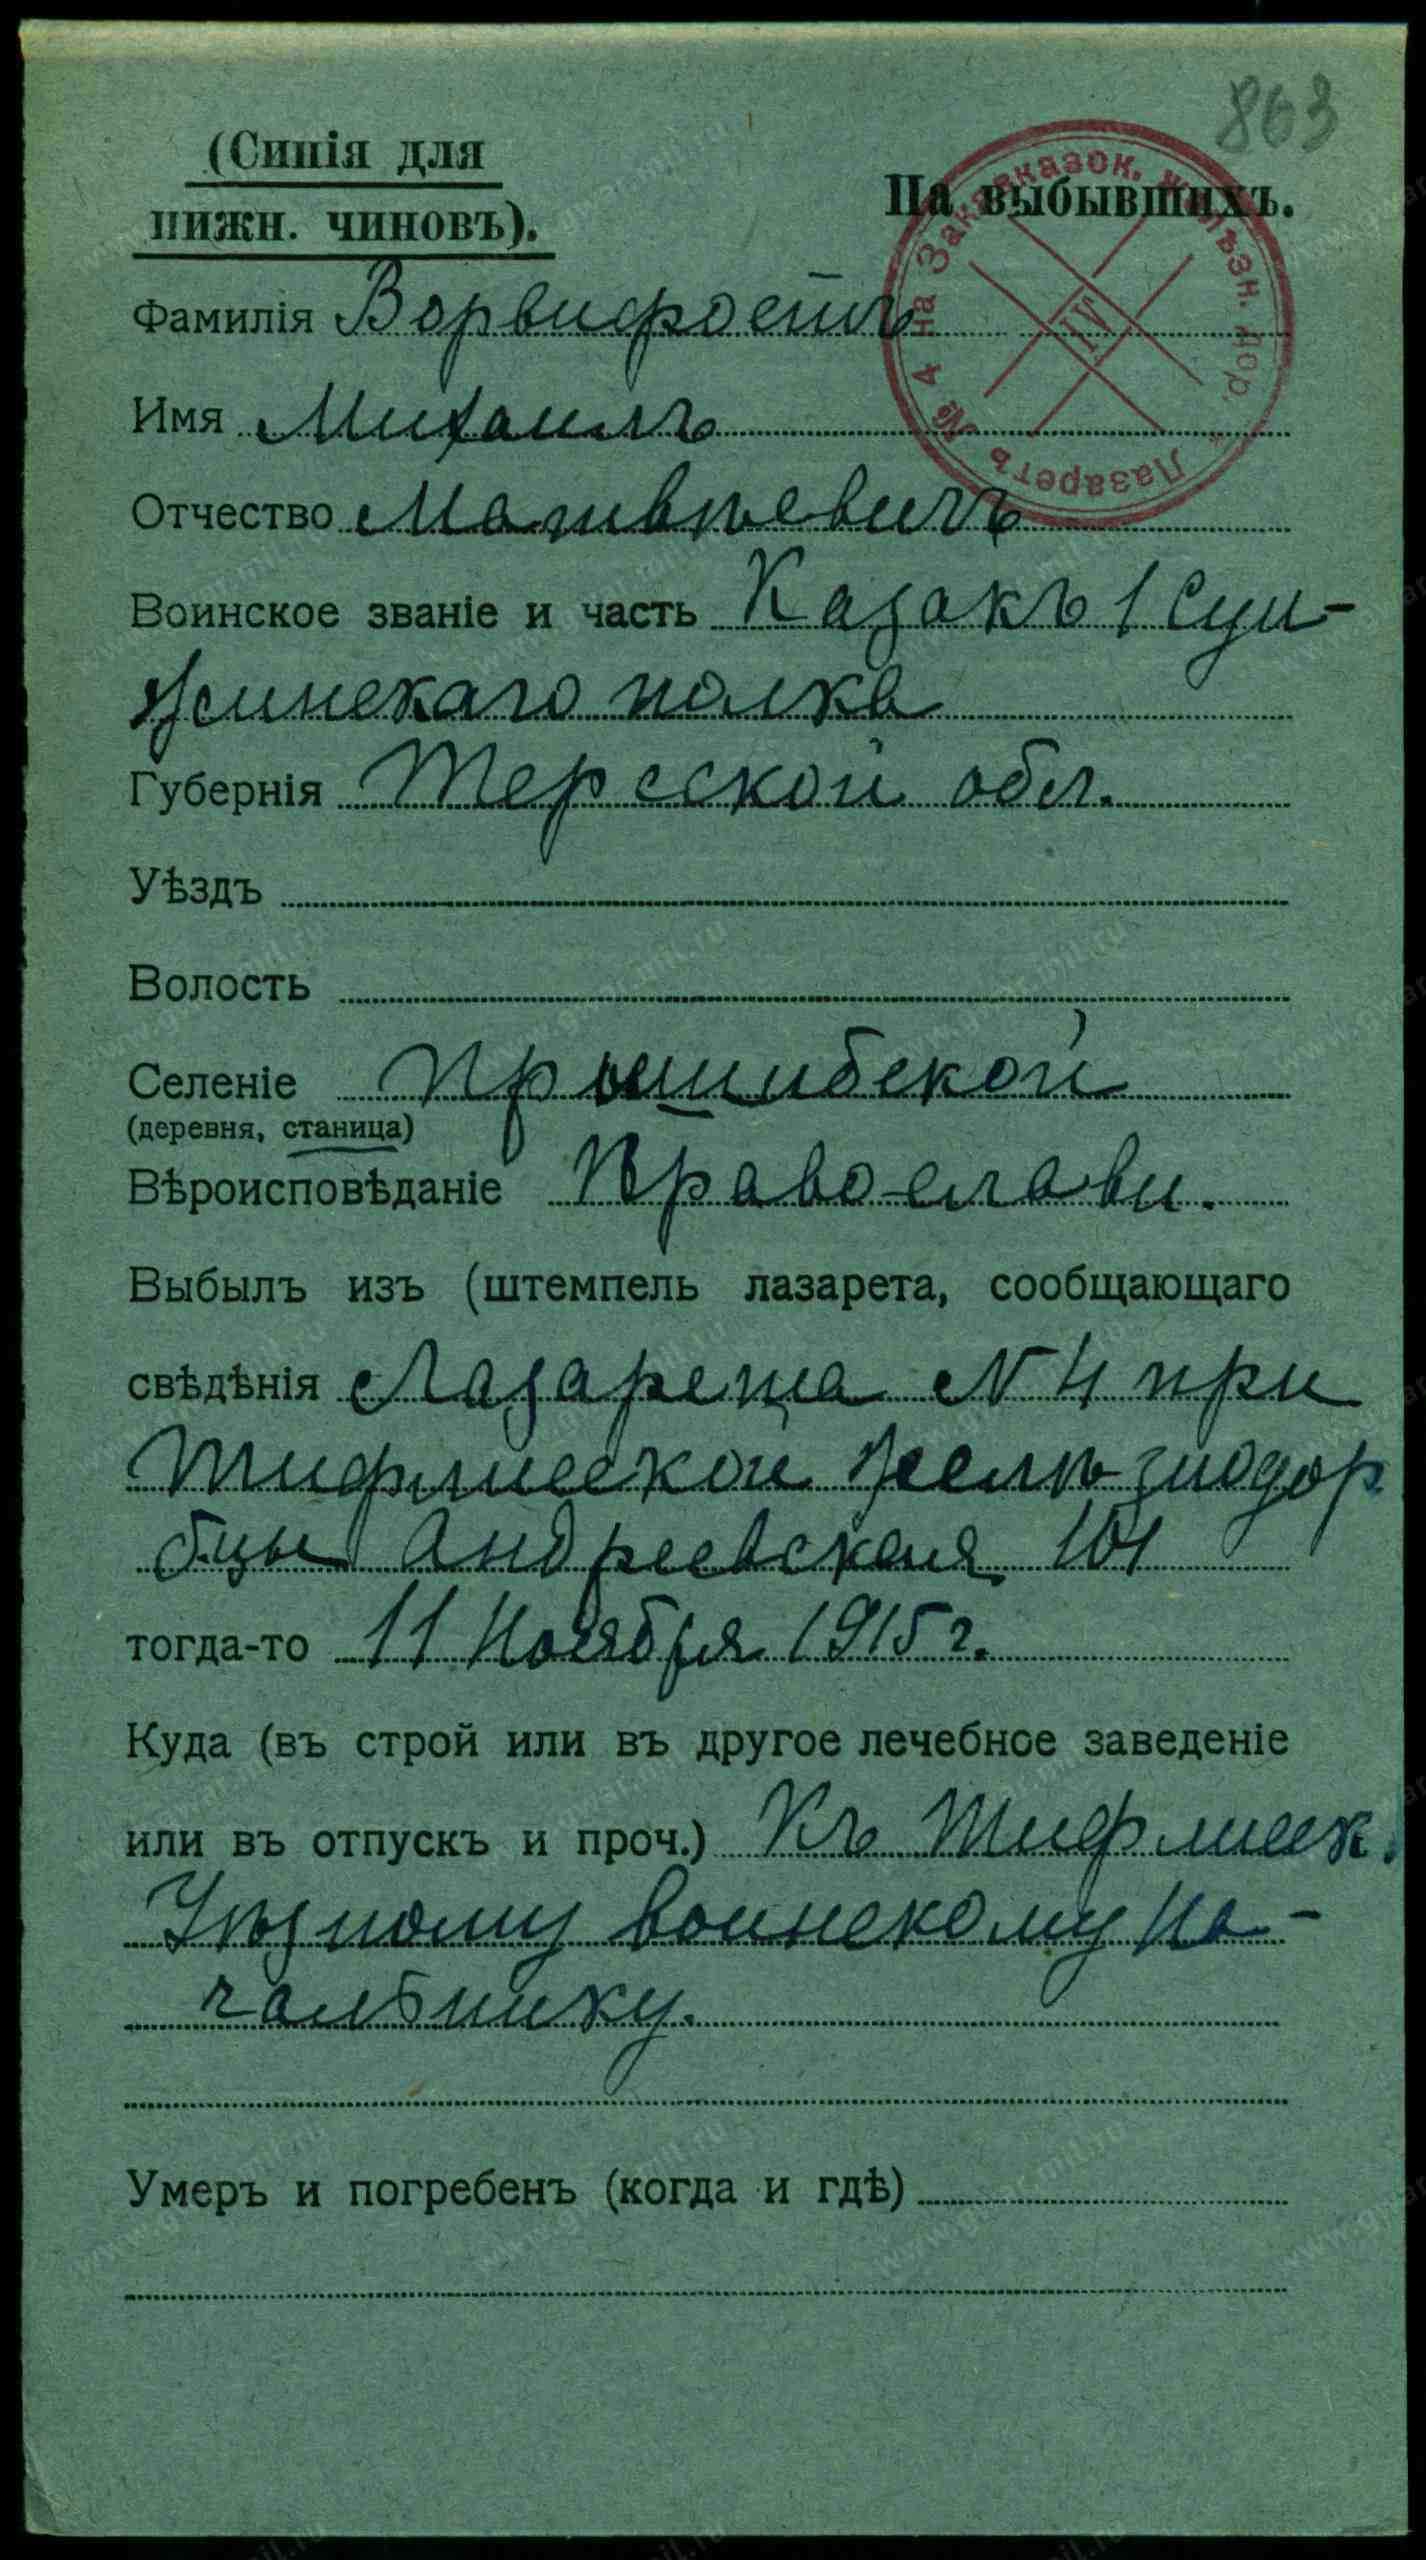 863
(Синія для
нижн. чиновъ).
На выбывшихъ.
Лазаретъ № 4 на Закавказск. желѣзн. дор.
IV
Фамилія Ворвифостъ
Имя Михаилъ
Отчество Матвѣевичъ
Воинское званіе и часть Казакъ 1 Сун-
женскаго полка
Губернія Терсской обл.
Уѣздъ
Волость
Селеніе Пришибской
(деревня, станица)
Вѣроисповѣданіе Православн.
Выбылъ изъ (штемпель лазарета, сообщающаго
свѣдѣнія Лазарета № 4 при
Тифлисской желѣзнодор
бцы Андреевская 101
тогда-то 11 Ноября 1915 г.
Куда (въ строй или въ другое лечебное заведеніе
или въ отпускъ и проч.) Къ Тифлиск.
Уѣзному воинскому На-
чальнику.
Умеръ и погребенъ (когда и гдѣ)
www.gwar.mil.ru